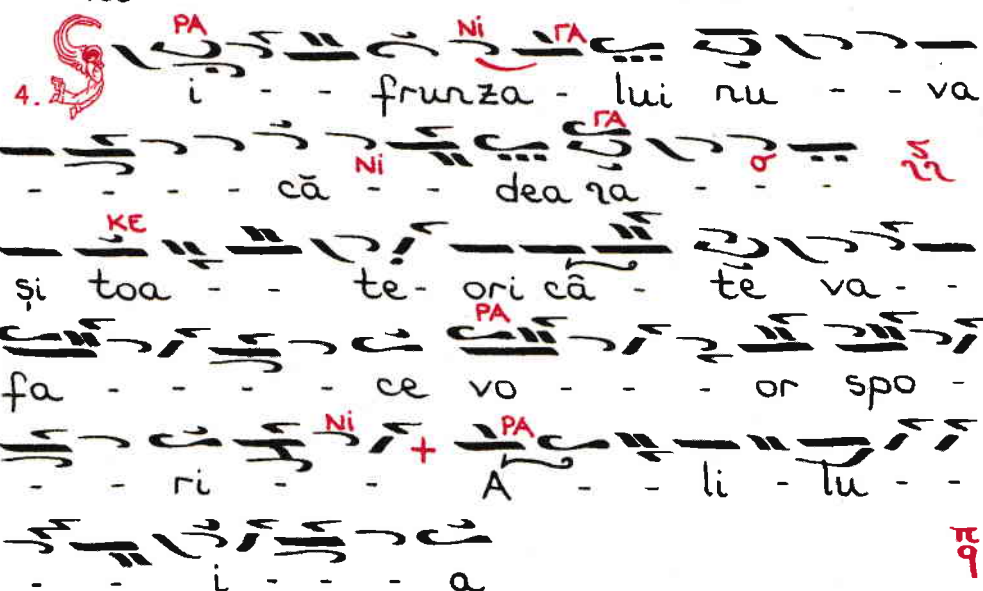 PA Ni ΓΑ
4. Și - - frunza - lui nu - - va
ΓΑ
Ni
- - - - că - - dea ra - - -
KE
și toa - - te - ori câ - te va - -
PA
fa - - - - ce vo - - - or spo -
Ni PA
- - ri - - A - - li - lu - -
- - i - - - a
π
q